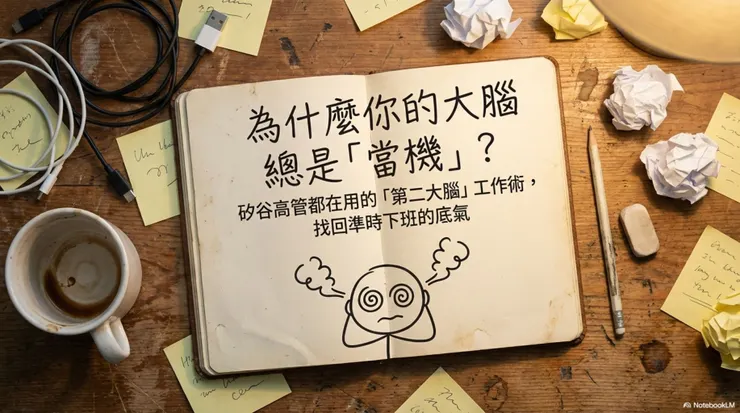 為什麼你的大腦
總是「當機」？
矽谷高管都在用的「第二大腦」工作術，
找回準時下班的底氣
NotebookLM